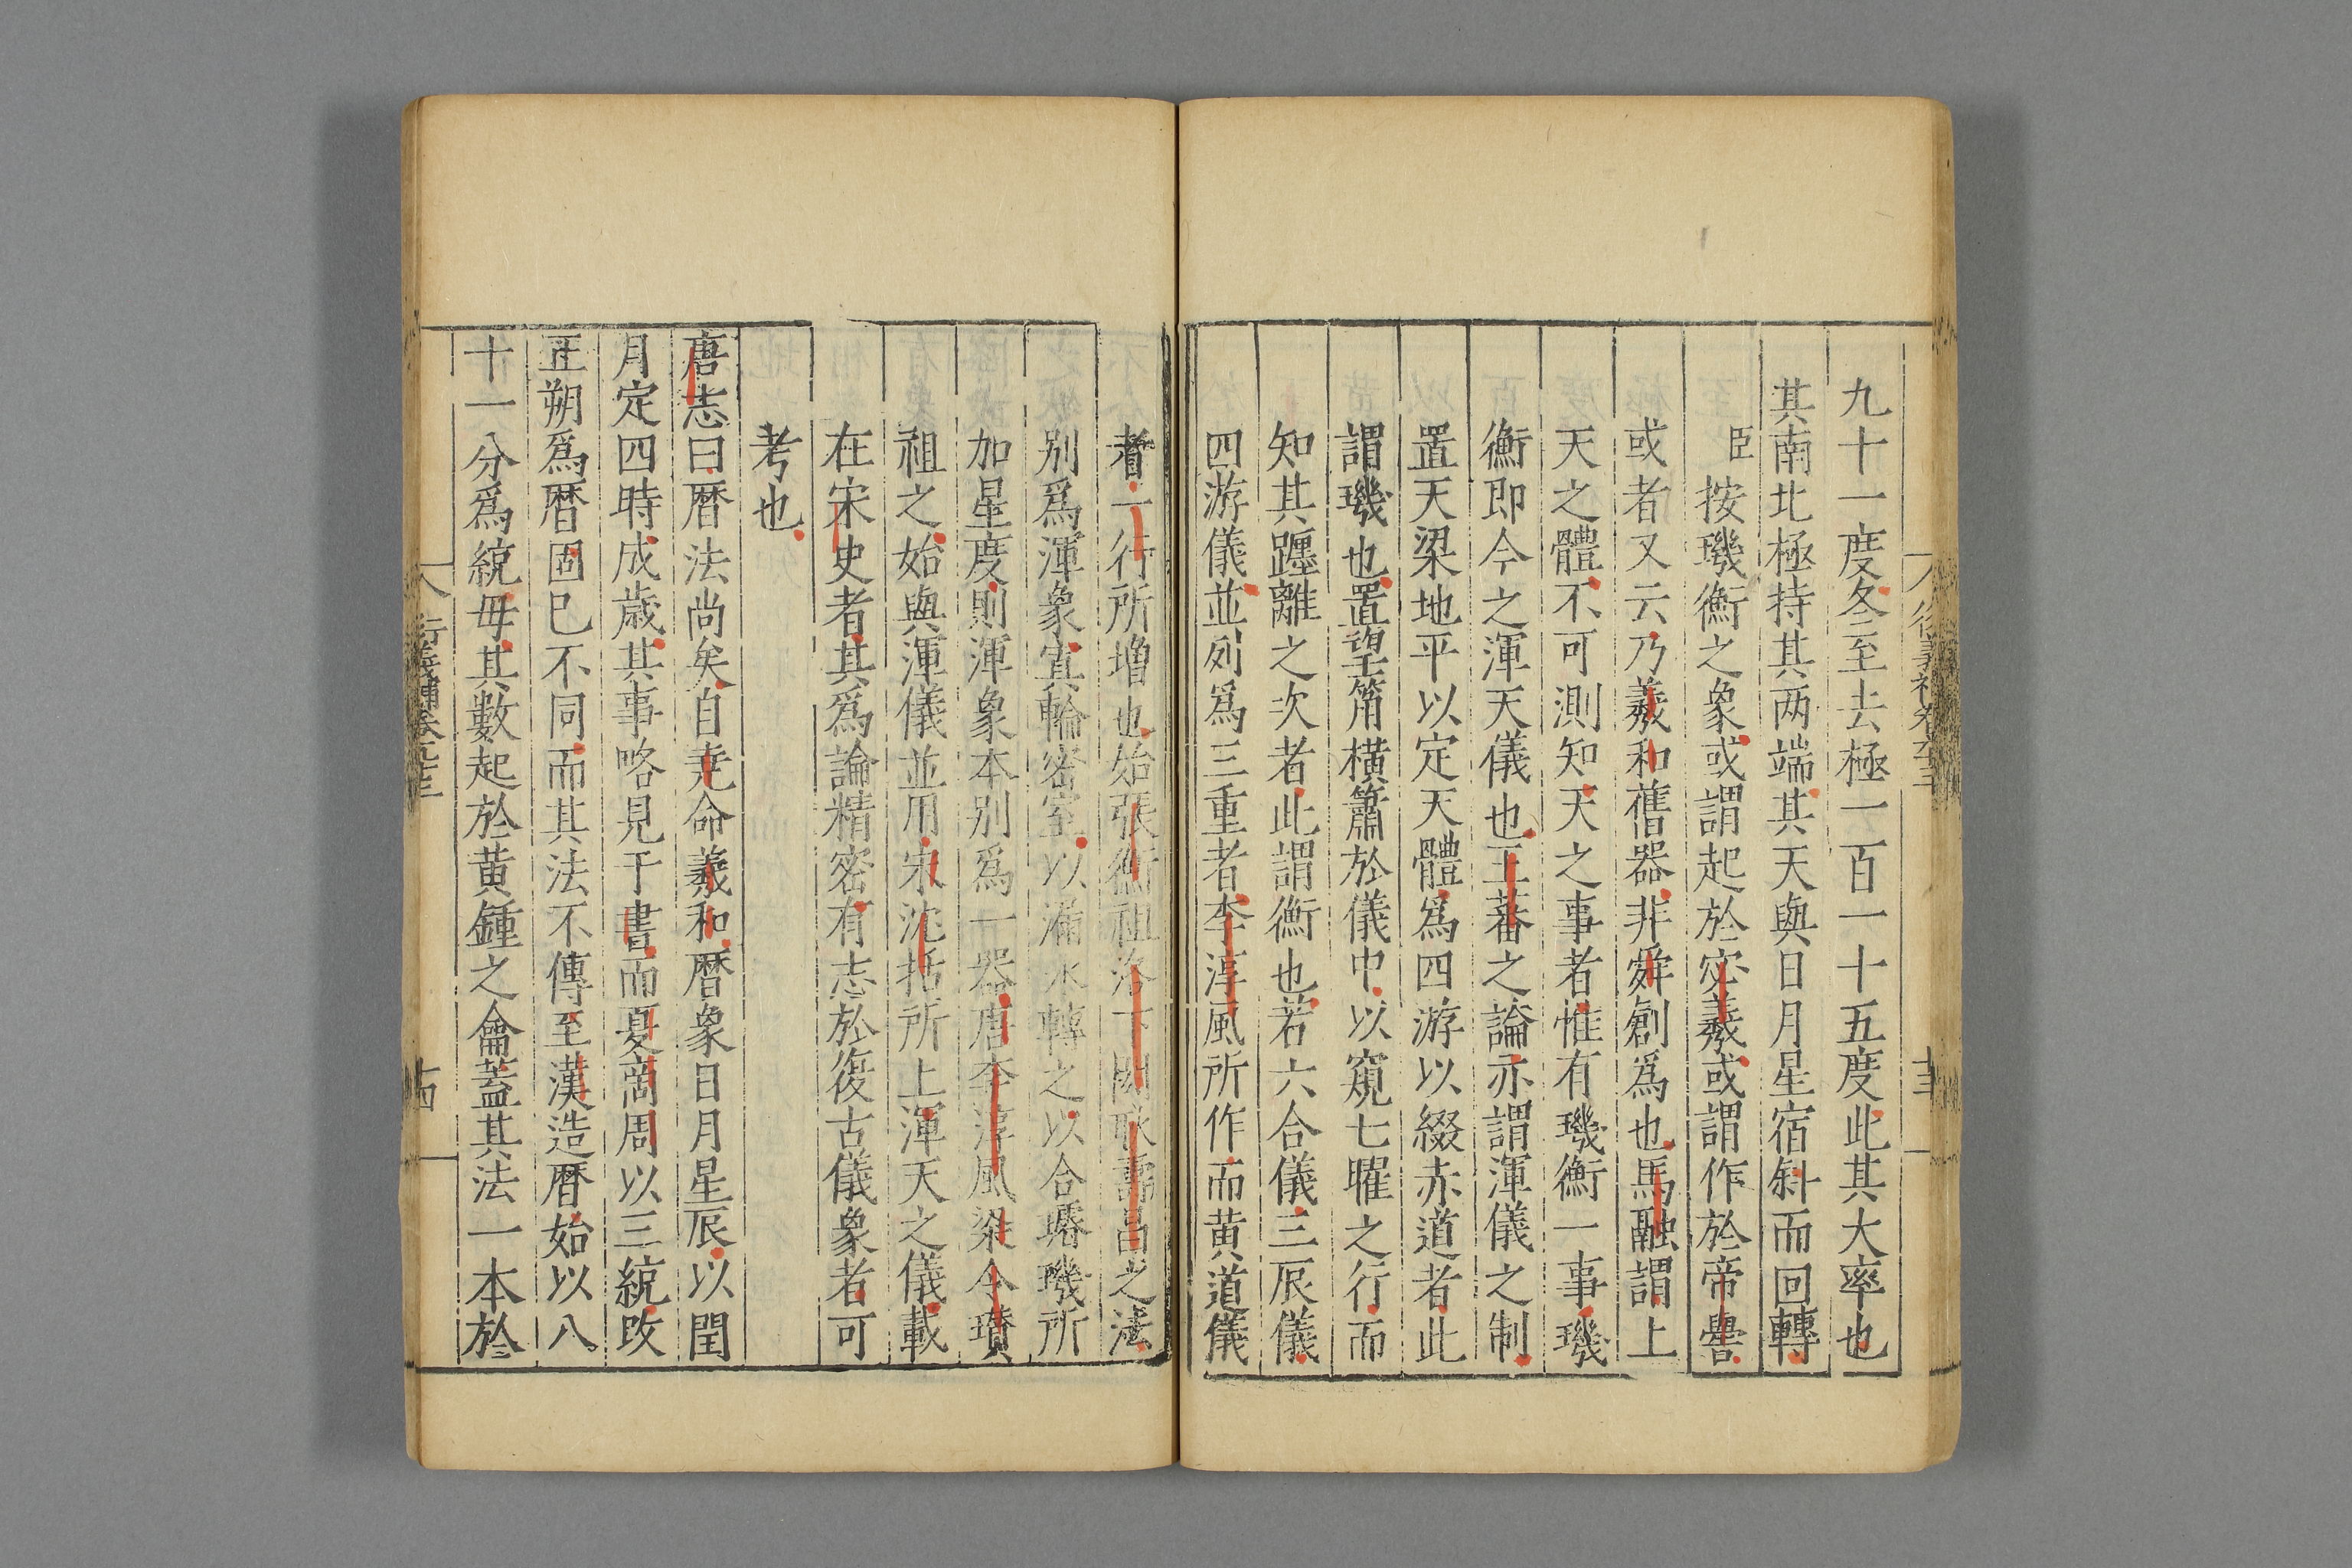 九十一度冬至去極一百一十五度此其大率也
其南北極持其两端其天與日月星宿斜而回轉
臣按璣衡之象或謂起於宓羲或謂作於帝嚳
或者又云乃羲和舊器非舜創爲也馬融謂上
天之體不可測知天之事者惟有璣衡一事璣
衡即今之渾天儀也王蕃之論亦謂渾儀之制
置天梁地平以定天體爲四游以綴赤道者此
謂璣也置望筩橫簫於儀中以窺七曜之行而
知其躔離之次者此謂衡也若六合儀三辰儀
四游儀並列爲三重者李淳風所作而黄道儀
者一行所増也始張衡祖洛下閎耿壽昌之法
别爲渾象寘輪密室以漏水轉之以合璿璣所
加星度則渾象本别爲一器唐李淳風梁令瓚
祖之始與渾儀並用宋沈括所上渾天之儀載
在宋史者其爲論精密有志於復古儀象者可
考也
唐志曰曆法尚矣自堯命羲和曆象日月星辰以閏
月定四時成歳其事略見于書而夏商周以三統改
正朔爲曆固已不同而其法不傳至漢造曆始以八
十一分爲統母其數起於黄鍾之龠蓋其法一本於
行義補卷九十三
十四